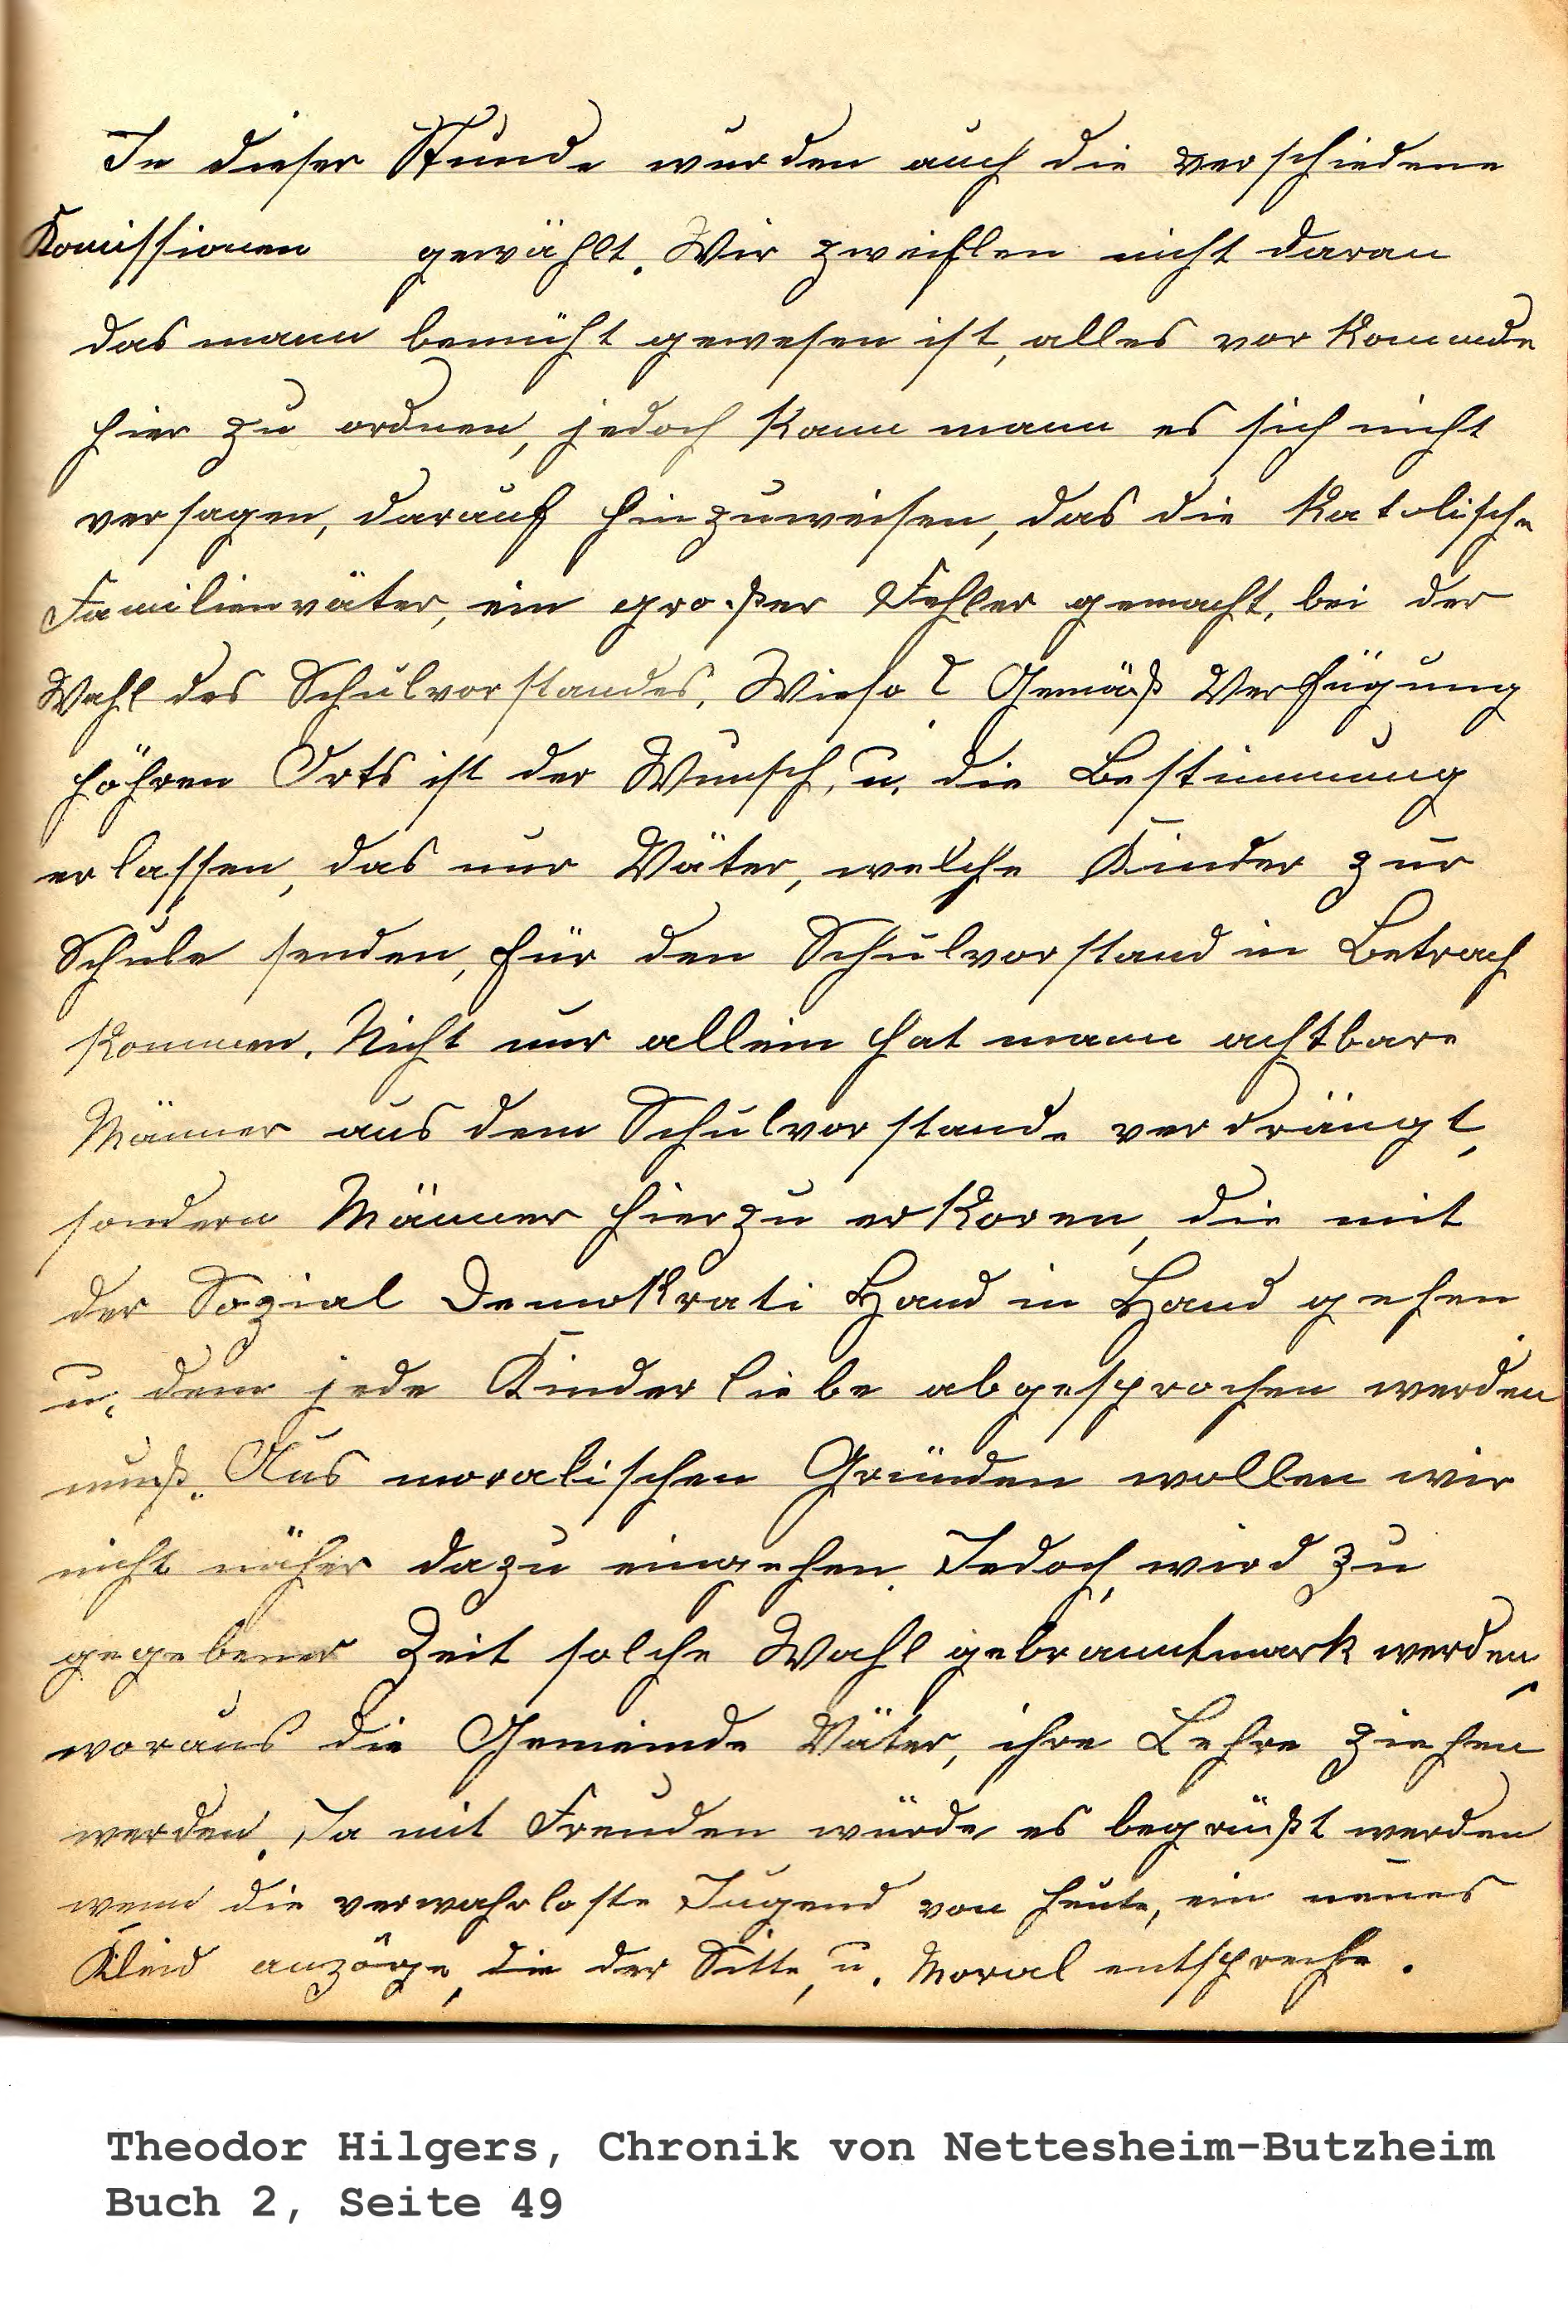 In dieser Stunde wurden auch die verschiedene
Komissionen gewählt. Wir zweiflen nicht daran
das mann bemüht gewesen ist, alles vor kommde
hier zu ordnen, jedoch kann mann es sich nicht
versagen, darauf hinzuweisen, das die katolische
Familienväter, ein großer Fehler gemacht, bei der
Wahl des Schulvorstandes, Wieso? Gemäß Verfügung
höhren Orts ist der Wunsch, u. die Bestimmung
erlassen, das nur Väter, welche Kinder zur
Schule senden, für den Schulvorstand in Betrach
kommen. Nicht nur allein hat mann achtbare
Männer aus dem Schulvorstande verdrängt,
sondern Männer hierzu erkoren, die mit
der Sozial Demokrati Hand in Hand gehen
u. dem jede Kinder liebe abgesprochen werden
muß. Aus moralischen Gründen wollen wir
nicht näher dazu eingehen. Jedoch wird zu
gegebener Zeit solche Wahl gebranntmark werden,
woraus die Gemeinde Väter, ihre Lehre ziehen
werden. Ja mit Freuden würde es begrüßt werden
wenn die verwahrloste Jugend von heute, ein neues
Kleid anzöge, die der Sitte, u. Moral entspreche.
Theodor Hilgers, Chronik von Nettesheim-Butzheim
Buch 2, Seite 49